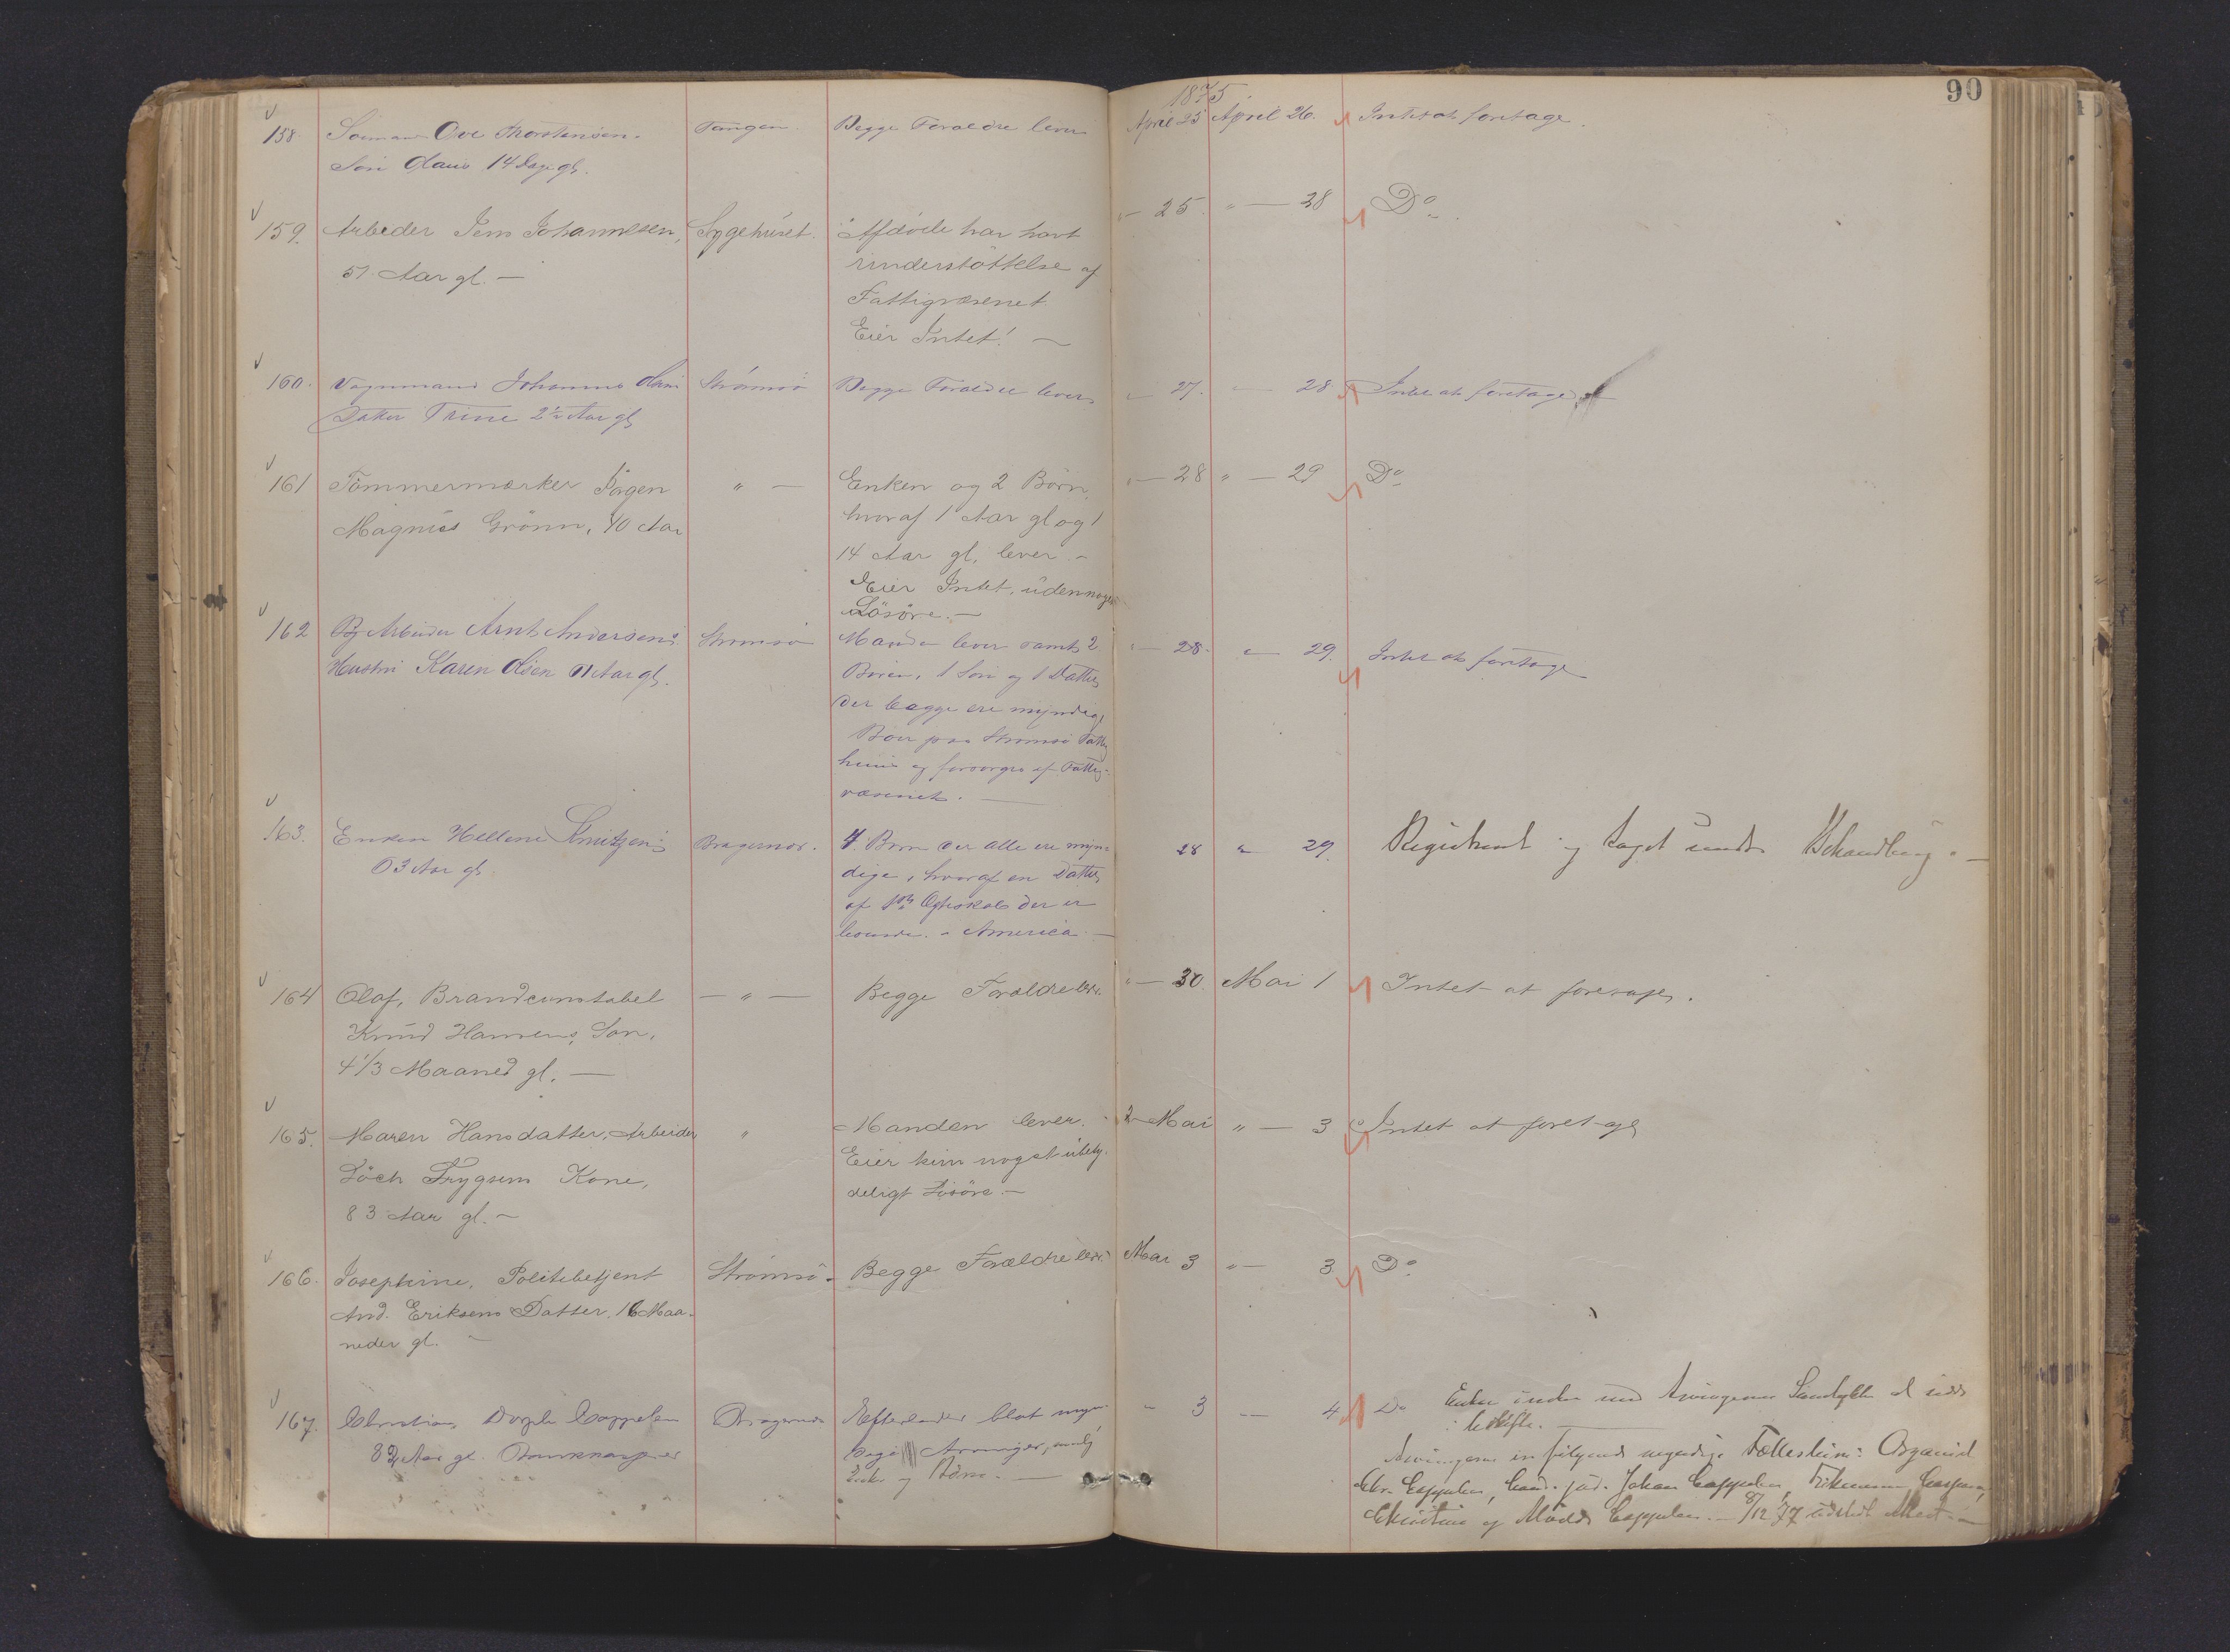 90
1875
158. Sømand Ove Thorstensen. Tangen. Begge Foraeldre lever April 25 April 26. Intet at foretage.
Søn Olaus 14 Dage gl.
159. Arbeider Jens Johannesen, Sygehuset. Afdøde har havt " — 25. " — 28 Do
51 Aar gl. — understøttelse af
Fattigvæsenet
Eier Intet! —
160. Vognmand Johannes Strømsø Begge Foraeldre lever " 27. " — 28 Intet at foretage
Datter Trine 2½ Aar gl
161 Tømmermærker Jørgen " — Enken og 2 Børn, " — 28 " — 29 Do
Magnus Grønn, 40 Aar hvoraf 1 Aar gl og 1
14 Aar gl. lever. —
Eier Intet, uden noget
Løsøre. —
162 Arbeider Arnt Andersens Strømsø Manden lever samt 2 " — 28. " — 29. Intet at foretage
Hustru Karen Olsen Aar gl. Børn, 1 Søn og 1 Datter
der begge ere myndige
Boer paa Strømsø Fattig
huus og forsørges af Fattig-
væsenet. —
163. Enken Hellene Bragernes. 4 Børn der alle ere myn- 28 " 29. Registreret og taget under Behandling. —
63 Aar gl dige, hvoraf en Datter
af 1ste Ægteskab der er
boende i America —
164 Olaf, Brandconstabel — " — Begge Forældre lev. " — 30 Mai 1 Intet at foretage.
Knud Hansens Søn,
4 1/3 Maaned gl. —
165. Maren Hansdatter, Arbeider " Manden lever. 2 Mai " — 3 Intet at foretage
Kone, Eier kun noget ubety-
83 Aar gl. — deligt Løsøre. —
166. Josephine, Politibetjent Strømsø — Begge Forældre lev. Mai 3 " — 3 Do
And. Eriksens Datter, 16 Maa-
neder gl. —
167. Christian Cappelen Bragernes Efterlader blot myn- " 3 — 4 Do Enken med Arvingernes Samtykke at sidde
82 Aar gl. dige Arvinger, nemlig i uskifte. —
Enke og Børn. — Arvingerne ere følgende myndige Fællesbørn: Organist
Chr. Cappelen, Cand. jur. Johan Cappelen,
Christine og Cappelen. — 8/12 77 udstedt Attest. —